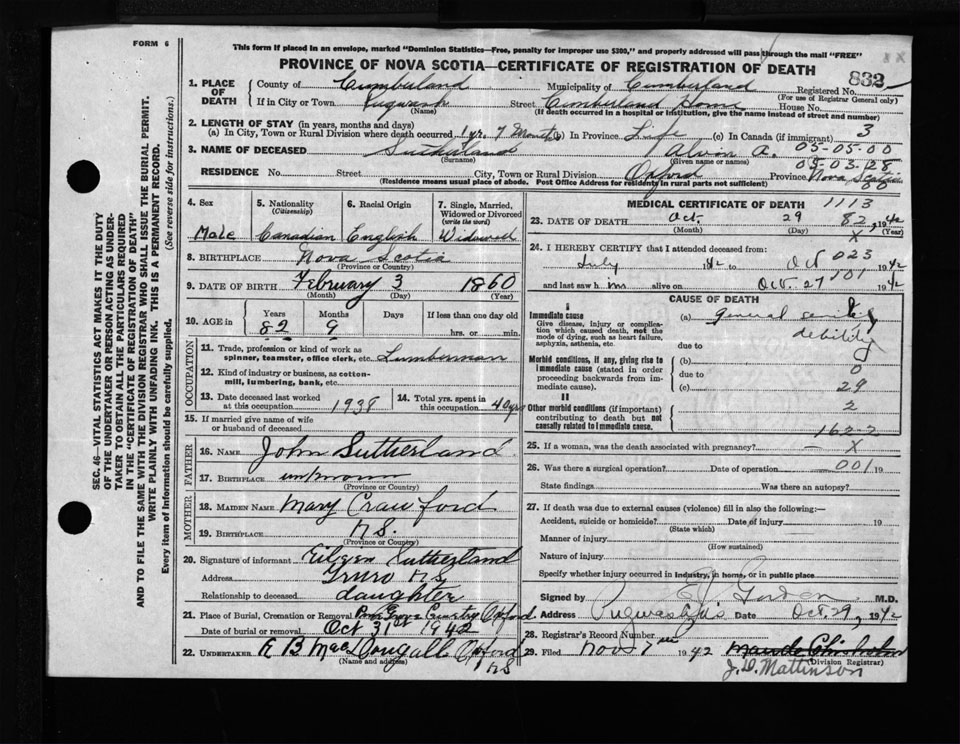 FORM 6
This form if placed in an envelope, marked "Dominion Statistics—Free, penalty for improper use $300," and properly addressed will pass through the mail "FREE"
PROVINCE OF NOVA SCOTIA—CERTIFICATE OF REGISTRATION OF DEATH
832
1. PLACE OF DEATH
County of Cumberland Municipality of Cumberland Registered No.
(For use of Registrar General only)
If in City or Town Pugwash Street Cumberland Home House No.
(Name) (If death occurred in a hospital or institution, give the name instead of street and number)
2. LENGTH OF STAY (in years, months and days)
(a) In City, Town or Rural Division where death occurred 1 yr. 7 Months (b) In Province Life (c) In Canada (if immigrant) 3
3. NAME OF DECEASED Sutherland Alvin A. 05-05-00
(Surname) (Given name or names) 05-03-128
RESIDENCE No. Street City, Town or Rural Division Oxford Province Nova Scotia
(Residence means usual place of abode. Post Office Address for residents in rural parts not sufficient)
4. Sex Male
5. Nationality (Citizenship) Canadian
6. Racial Origin English
7. Single, Married, Widowed or Divorced (write the word) Widowed
8. BIRTHPLACE Nova Scotia
(Province or Country)
9. DATE OF BIRTH February 3 1860
(Month) (Day) (Year)
10. AGE in Years Months Days If less than one day old
82 9 hrs. or min.
OCCUPATION
11. Trade, profession or kind of work as spinner, teamster, office clerk, etc. Lumberman
12. Kind of industry or business, as cotton-mill, lumbering, bank, etc.
13. Date deceased last worked at this occupation 1938
14. Total yrs. spent in this occupation 40 yrs
15. If married give name of wife or husband of deceased
FATHER
16. NAME John Sutherland
17. BIRTHPLACE unknown
(Province or Country)
MOTHER
18. MAIDEN NAME Mary Crawford
19. BIRTHPLACE N.S.
(Province or Country)
20. Signature of informant Eileen Sutherland
Address Truro N.S.
Relationship to deceased daughter
21. Place of Burial, Cremation or Removal Pine Grove Cemetery Oxford
Date of burial or removal Oct 31st 1942
22. UNDERTAKER R B MacDougall Oxford
(Name and address) N S
MEDICAL CERTIFICATE OF DEATH 1113
23. DATE OF DEATH Oct. 29 82, 1942
(Month) (Day) X (Year)
24. I HEREBY CERTIFY that I attended deceased from:
July 1942 to Oct 023 1942
and last saw him alive on Oct. 27 101 1942
CAUSE OF DEATH
I
Immediate cause
Give disease, injury or complication which caused death, not the mode of dying, such as heart failure, asphyxia, asthenia, etc.
(a) general senility debility
due to
Morbid conditions, if any, giving rise to immediate cause (stated in order proceeding backwards from immediate cause).
(b)
due to 0
(c) 29
II
Other morbid conditions (if important) contributing to death but not causally related to immediate cause.
2
162-2
25. If a woman, was the death associated with pregnancy? X
26. Was there a surgical operation? Date of operation 001 19
State findings Was there an autopsy?
27. If death was due to external causes (violence) fill in also the following:—
Accident, suicide or homicide? Date of injury 19
(State which)
Manner of injury
(How sustained)
Nature of injury
Specify whether injury occurred in industry, in home, or in public place
Signed by Gordon M.D.
Address Pugwash N.S. Date Oct. 29, 1942
28. Registrar's Record Number
29. Filed Nov 7 1942 Maude Chisholm
(Division Registrar)
J. D. Mattinson
SEC. 46—VITAL STATISTICS ACT MAKES IT THE DUTY
OF THE UNDERTAKER OR PERSON ACTING AS UNDERTAKER TO OBTAIN ALL THE PARTICULARS REQUIRED
IN THE "CERTIFICATE OF REGISTRATION OF DEATH"
AND TO FILE THE SAME WITH THE DIVISION REGISTRAR WHO SHALL ISSUE THE BURIAL PERMIT.
WRITE PLAINLY WITH UNFADING INK. THIS IS A PERMANENT RECORD.
Every item of Information should be carefully supplied. (See reverse side for instructions.)